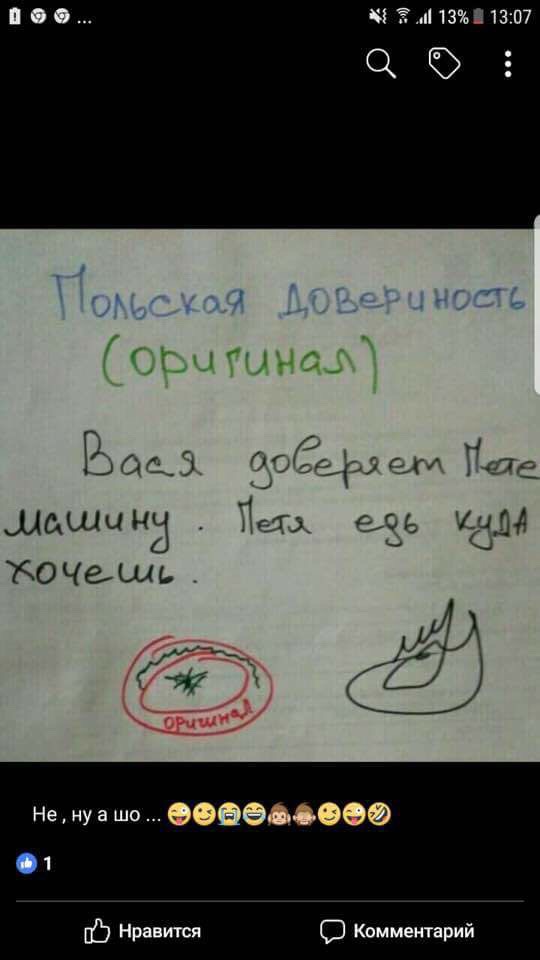 13% 13:07
Польская довериность
(оригинал)
Вася доверяет Пете
машину. Петя едь куда
хочешь.
оригинал
Не , ну а шо ... 😜😉😭😂🙈🙈😉😜🤣
1
Нравится Комментарий